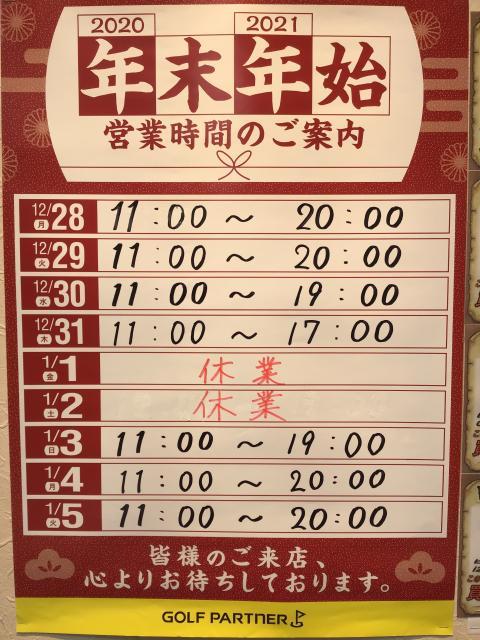 2020 2021
年末年始
営業時間のご案内
12/28 月 11:00 〜 20:00
12/29 火 11:00 〜 20:00
12/30 水 11:00 〜 19:00
12/31 木 11:00 〜 17:00
1/1 金 休業
1/2 土 休業
1/3 日 11:00 〜 19:00
1/4 月 11:00 〜 20:00
1/5 火 11:00 〜 20:00
皆様のご来店、
心よりお待ちしております。
GOLF PARTNER